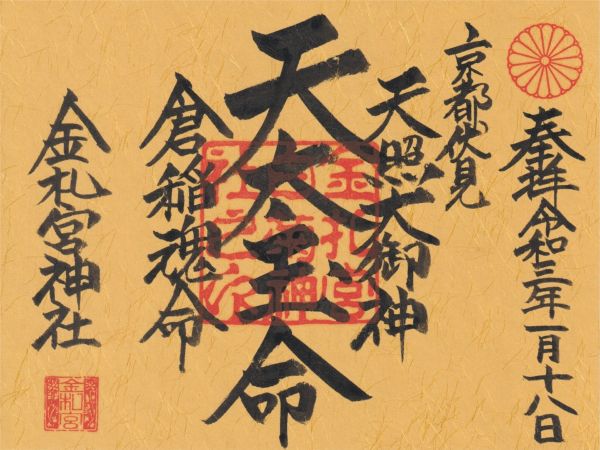 奉拝 令和三年一月十八日
京都伏見
天照大御神
天太玉命
倉稲魂命
金札宮神社
金札宮